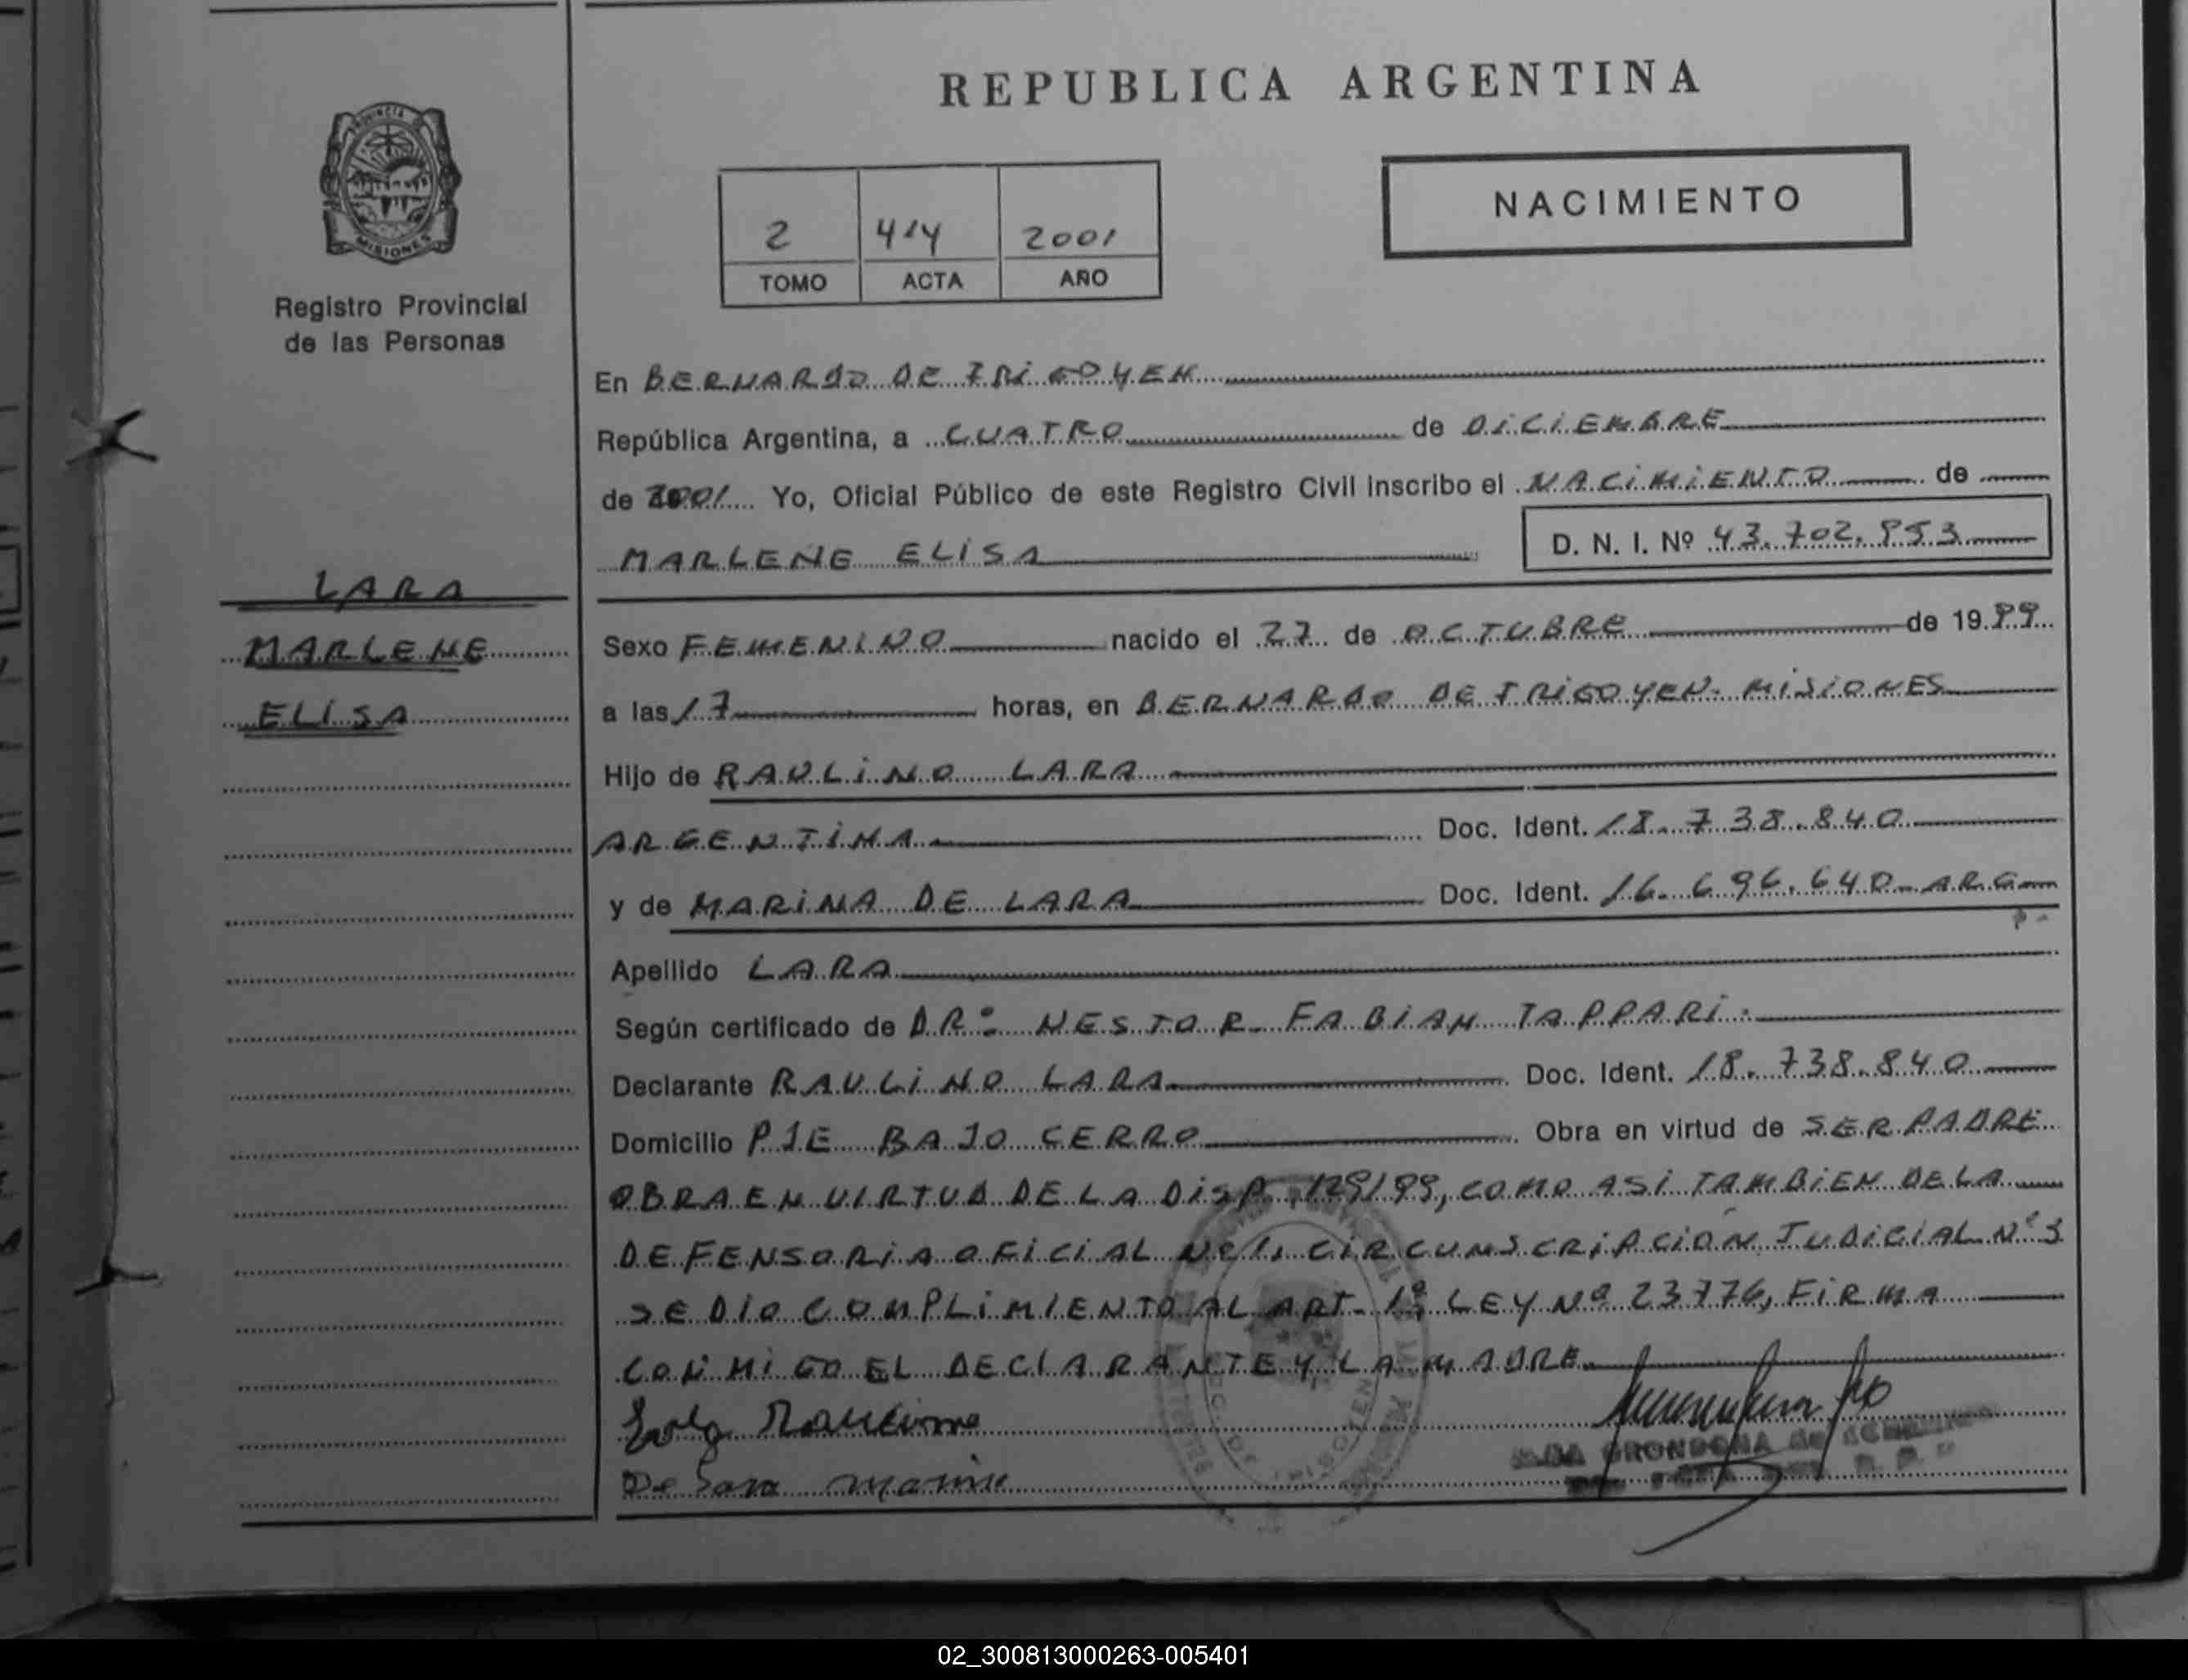 REPUBLICA ARGENTINA
PROVINCIA DE
MISIONES
Registro Provincial
de las Personas
NACIMIENTO
2 414 2001
TOMO ACTA AÑO
En BERNARDO DE IRIGOYEN
República Argentina, a CUATRO de DICIEMBRE
de 2001 Yo, Oficial Público de este Registro Civil inscribo el NACIMIENTO de
MARLENE ELISA D. N. I. Nº 43.702.953
LARA
MARLENE
ELISA
Sexo FEMENINO nacido el 27 de OCTUBRE de 1999
a las 17 horas, en BERNARDO DE IRIGOYEN- MISIONES
Hijo de RAULINO LARA
ARGENTINA Doc. Ident. 18.738.840
y de MARINA DE LARA Doc. Ident. 16.696.640-ARG
Apellido LARA
Según certificado de DR: NESTOR FABIAN TAPPARI.
Declarante RAULINO LARA Doc. Ident. 18.738.840
Domicilio PJE BAJO CERRO Obra en virtud de SER PADRE
OBRA EN VIRTUD DE LA DISP. 129/99, COMO ASI TAMBIEN DE LA
DEFENSORIA OFICIAL Nº 1, CIRCUNSCRIPCION JUDICIAL Nº 3
SE DIO COMPLIMIENTO AL ART- 1º LEY Nº 23776, FIRMA
CONMIGO EL DECLARANTE Y LA MADRE.
De Lara
GRONDONA de
02_300813000263-005401